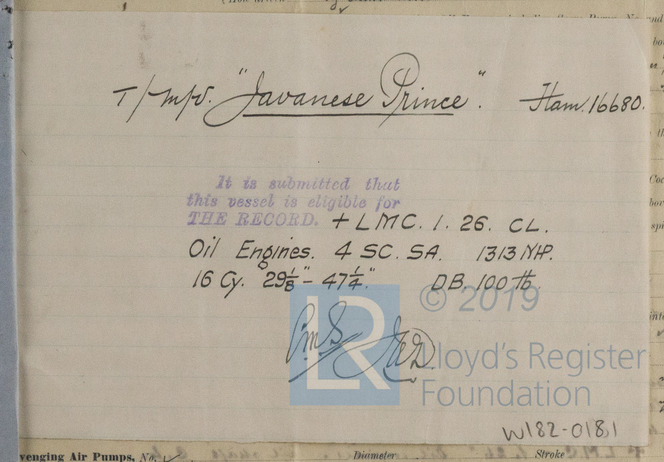 T/m/v. "Javanese Prince". Ham. 16680.
It is submitted that
this vessel is eligible for
THE RECORD. + LMC. 1. 26. CL.
Oil Engines. 4 SC. SA. 1313 NHP.
16 Cy. 29 1/8" - 47 1/4". DB. 100 lb.
LR
© 2019
Lloyd's Register
Foundation
W182-0181
venging Air Pumps, No.
Diameter
Stroke